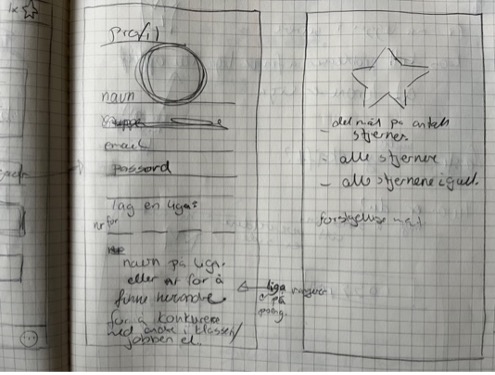 1x
profil
navn
email
passord
lag en liga?
nr for
navn på liga.
eller nr for å
finne hverandre
for å konkurrere
med andre i klassen/
jobben el.
liga
på
poeng.
- del mål på antall
stjerner.
- alle stjernene
- alle stjernene i gull.